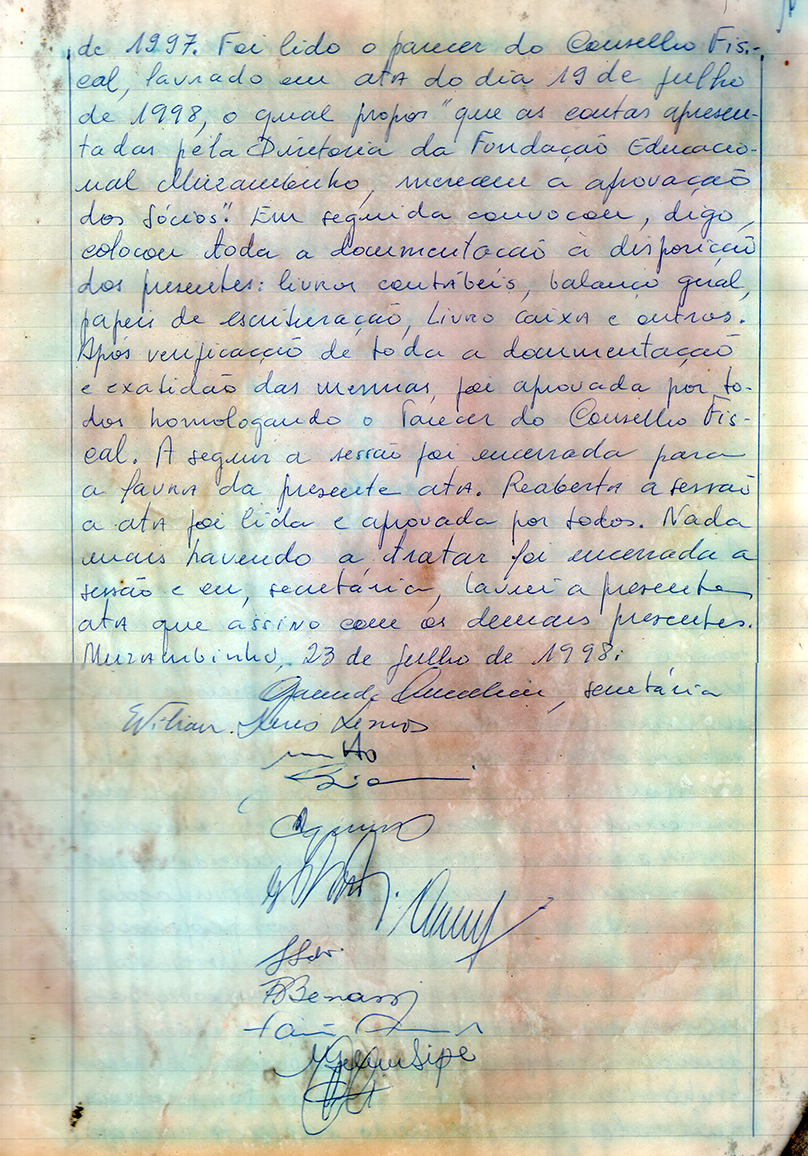 de 1997. Foi lido o parecer do Conselho Fis-
cal, lavrado em ata do dia 19 de julho
de 1998, o qual propos "que as contas apresen-
tadas pela Diretoria da Fundação Educacio-
nal Muzambinho, merecem a aprovação
dos sócios". Em seguida convocou, digo,
colocou toda a documentação à disposição
dos presentes: livros contábeis, balanço geral,
papeis de escrituração, Livro Caixa e outros.
Após verificação de toda a documentação
e exatidão das mesmas, foi aprovada por to-
dos homologando o Parecer do Conselho Fis-
cal. A seguir a sessão foi encerrada para
a lavra da presente ata. Reaberta a sessão
a ata foi lida e aprovada por todos. Nada
mais havendo a tratar foi encerrada a
sessão e eu, secretária, lavrei a presente
ata que assino com os demais presentes.
Muzambinho, 23 de julho de 1998.
, secretária
Lemos